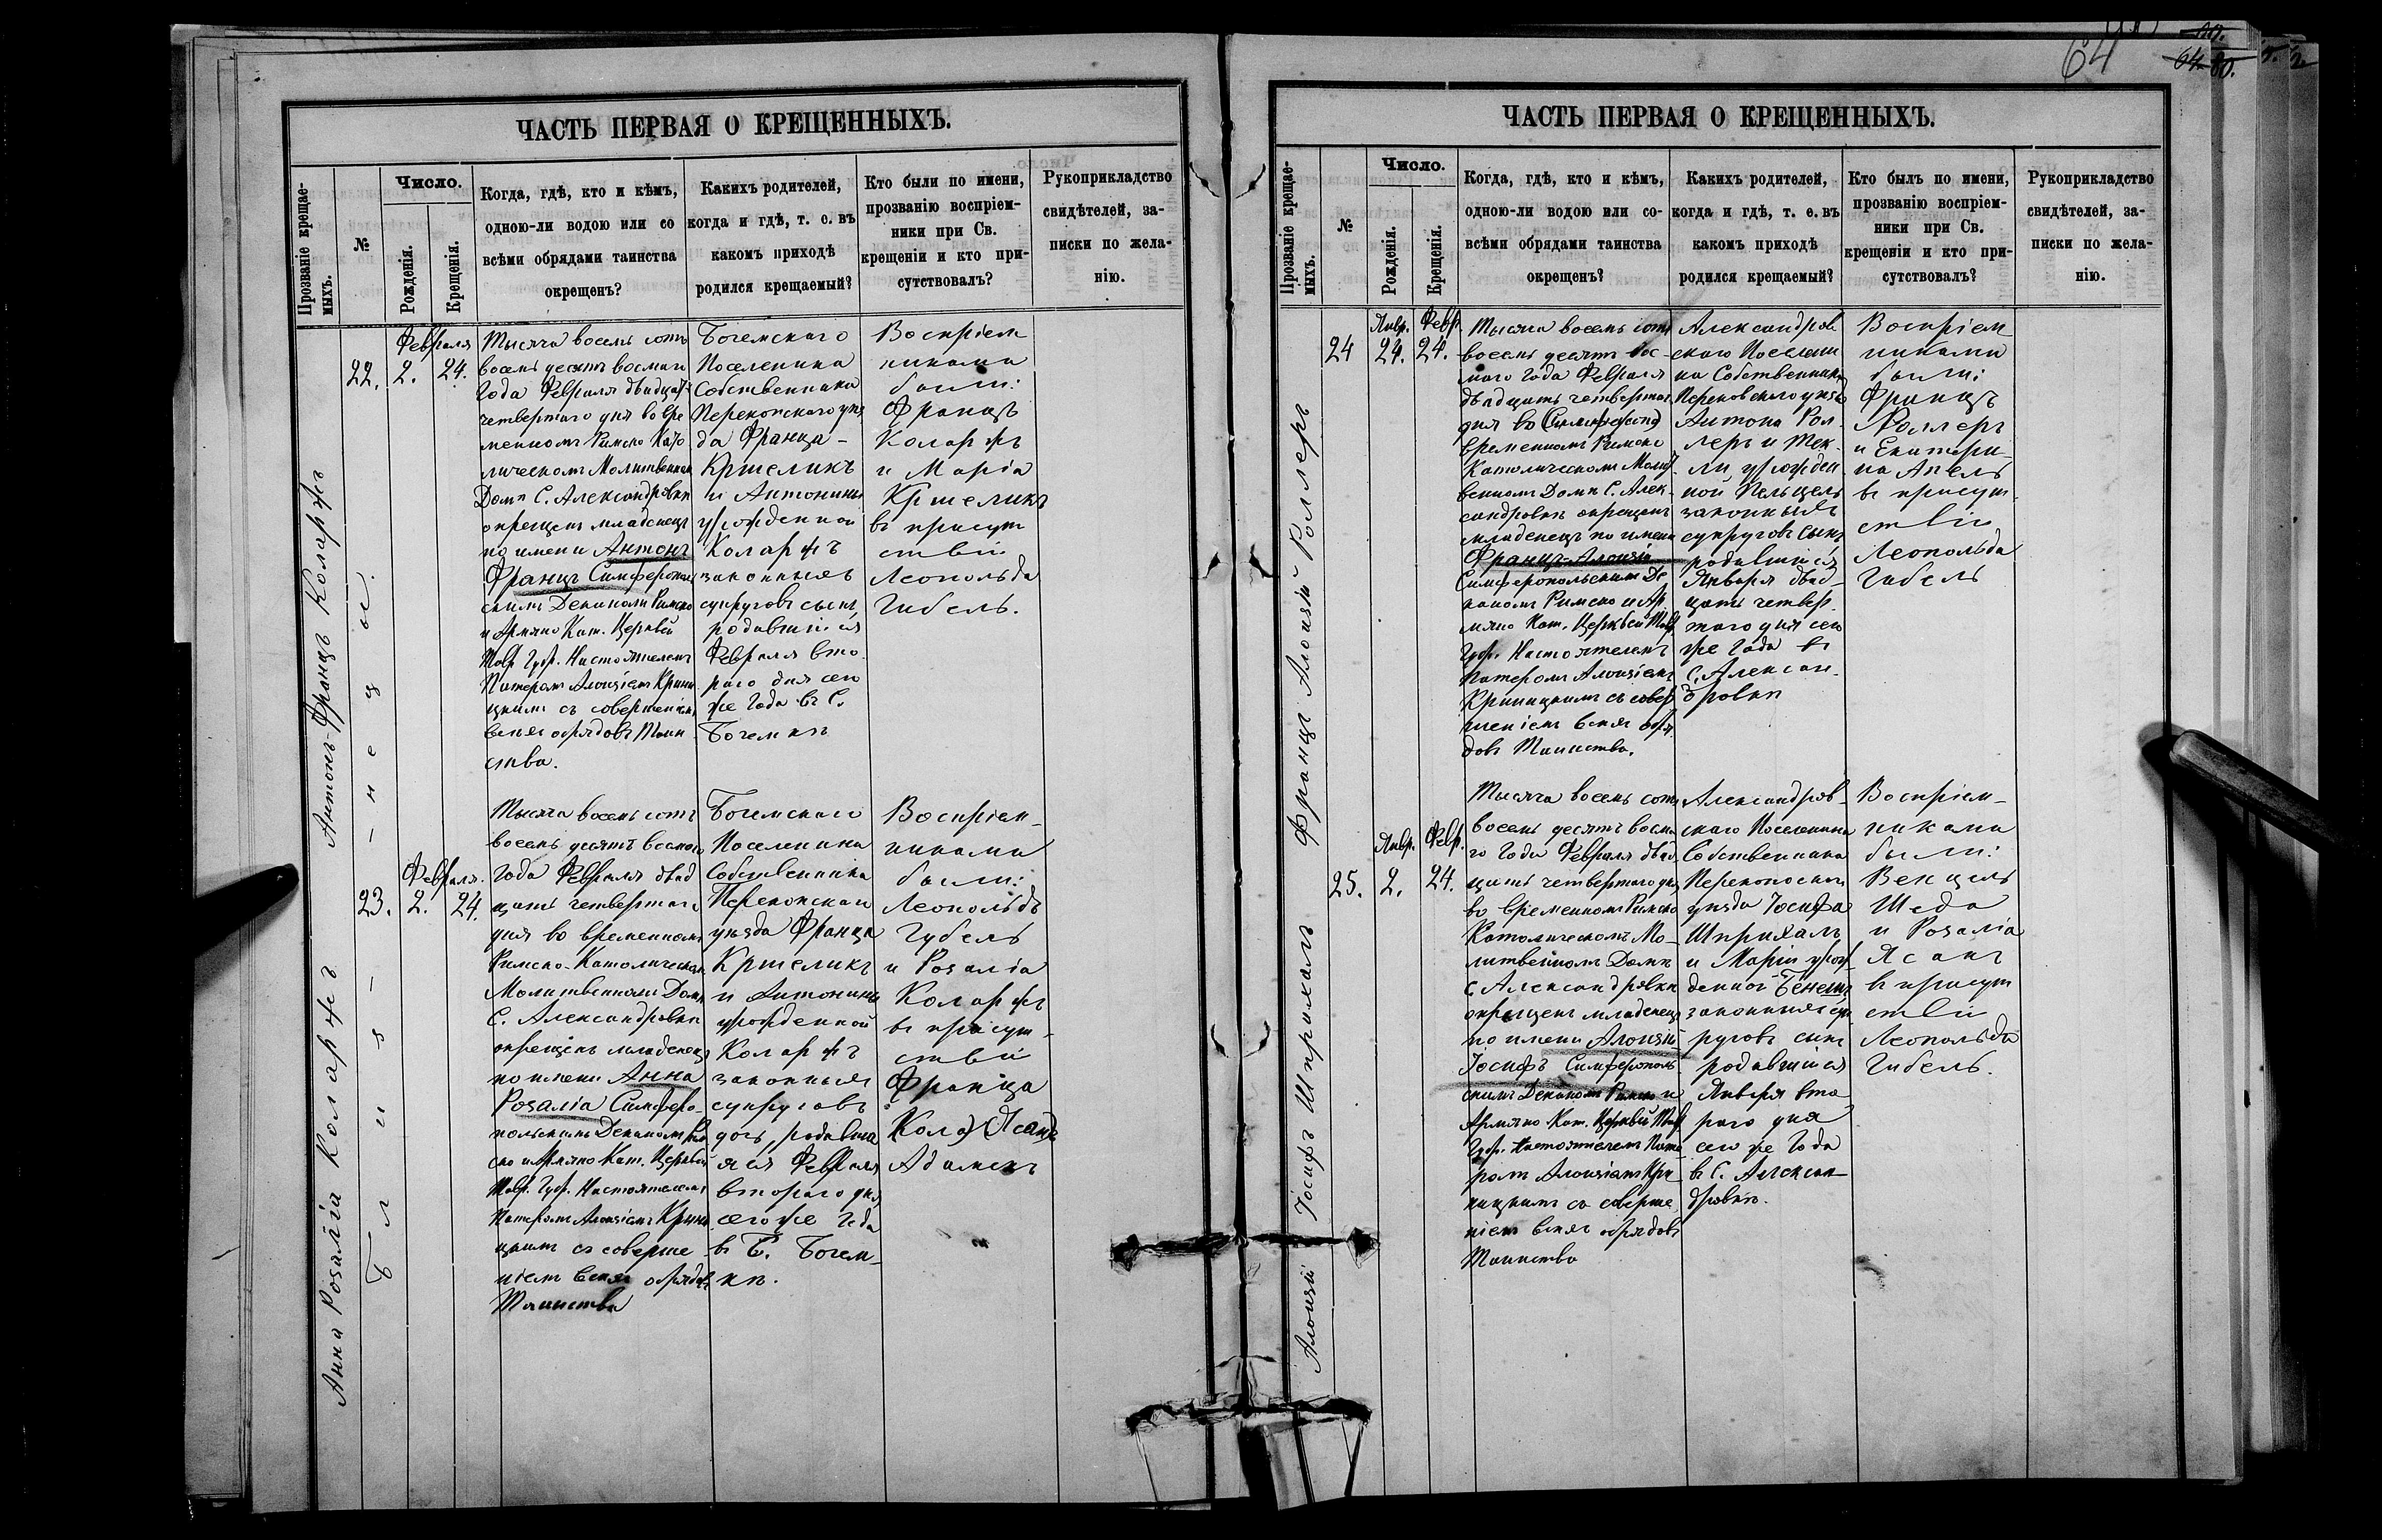 64
ЧАСТЬ ПЕРВАЯ О КРЕЩЕННЫХЪ.
Прозваніе крещае-
мыхъ.
№
Число.
Рожденія.
Крещенія.
Когда, гдѣ, кто и кѣмъ,
одною-ли водою или со
всѣми обрядами таинства
окрещенъ?
Какихъ родителей,
когда и гдѣ, т. е. въ
какомъ приходѣ
родился крещаемый?
Кто были по имени,
прозванію воспріем-
ники при Св.
крещеніи и кто при-
сутствовалъ?
Рукоприкладство
свидѣтелей, за-
писки по жела-
нію.
Антонъ-Францъ Коларжъ
близнецы.
22.
Февраля
2.
24.
Тысяча восемь сотъ
восемь десятъ восмаго
года Февраля двадцать
четвертаго дня во вре
менномъ Римско Като
лическомъ Молитвенномъ
Домѣ С. Александровки
окрещенъ младенецъ
по имени Антонъ
Францъ Симферополь
скимъ Деканомъ Римско
и Армяно Кат. Церквей
Тавр. Губ. Настоятелемъ
Патеромъ Алоизіемъ Крини
цкимъ съ совершеніемъ
всѣхъ обрядовъ Таин
ства.
Богемскаго
Поселенина
Собственника
Перекопскаго уѣз
да Франца -
Кршеликъ
и Антонины
урожденной
Коларжъ
законныхъ
супруговъ сынъ,
родившійся
Февраля вто
раго дня сего
же года въ С.
Богемкѣ
Воспріем
никами
были:
Францъ
Коларжъ
и Марія
Кршеликъ
въ присут
ствіи
Леопольда
Гибель.
Анна Розалія Коларжъ
23.
Февраля.
2.
24.
Тысяча восемь сотъ
восемь десятъ восмаго
года Февраля двад
цать четвертаго
дня во временномъ
Римско-Католическомъ
Молитвенномъ Домѣ
С. Александровки
окрещенъ младенецъ
по имени Анна
Розалія Симферо-
польскимъ Деканомъ Рим
ско и Армяно Кат. Церквей
Тавр. Губ. Настоятелемъ
Патеромъ Алоизіемъ Крини
цкимъ съ соверше
ніемъ всѣхъ обрядовъ
Таинства
Богемскаго
Поселенина
Собственника
Перекопскаго
уѣзда Франца
Кршеликъ
и Антонины
урожденной
Коларжъ
законныхъ
супруговъ
дочь, родивша
яся Февраля
втораго дня
сего же года
въ С. Богем-
кѣ.
Воспріем-
никами
были:
Леопольдъ
Губель
и Розалія
Коларжъ
въ присут-
ствіи
Франца
Адамекъ
ЧАСТЬ ПЕРВАЯ О КРЕЩЕННЫХЪ.
Прозваніе крещае-
мыхъ.
№
Число.
Рожденія.
Крещенія.
Когда, гдѣ, кто и кѣмъ,
одною-ли водою или со-
всѣми обрядами таинства
окрещенъ?
Какихъ родителей,
когда и гдѣ, т. е. въ
какомъ приходѣ
родился крещаемый?
Кто былъ по имени,
прозванію воспріем-
ники при Св.
крещеніи и кто при-
сутствовалъ?
Рукоприкладство
свидѣтелей, за-
писки по жела-
нію.
Францъ Алоизій Роллеръ
24
Янвр.
24.
Февр.
24.
Тысяча восемь сотъ
восемь десятъ вос-
маго года Февраля
двадцать четвертаго
дня во
временномъ Римско
Католическомъ Молит
венномъ Домѣ С. Алек-
сандровки окрещенъ
младенецъ по имени
Францъ-Алоизій
Симферопольскимъ Де
каномъ Римско и Ар
мяно Кат. Церквей Тавр.
Губ. Настоятелемъ
Патеромъ Алоизіемъ
Криницкимъ съ совер
шеніемъ всѣхъ обря
довъ Таинства.
Александров
скаго Поселени
на Собственника
Перекопскаго уѣзда
Антона Рол-
леръ и Тек-
ли урожден
ной Пельцель
законныхъ
супруговъ сынъ
родившійся
Января двад-
цать четвер
таго дня сего
же года въ
С. Алексан-
дровкѣ
Воспріем
никами
были:
Францъ
Роллеръ
и Екатери-
на Апель
въ присут-
ствіи
Леопольда
Гибель
Алоизій Іосифъ Шприхалъ
25.
Янвр.
2.
Февр.
24.
Тысяча восемь сотъ
восемь десятъ восма
го года Февраля двад
цать четвертаго дня
во временномъ Римско
Католическомъ Мо-
литвенномъ Домѣ
С Александровки
окрещенъ младенецъ
по имени Алоизій-
Іосифъ Симферополь
скимъ Деканомъ Римско и
Армяно Кат. Церквей Тавр
Губ. Настоятелемъ Пате
ромъ Алоизіемъ Кри-
ницкимъ съ соверше
ніемъ всѣхъ обрядовъ
Таинства
Александров-
скаго Поселенина
Собственника
Перекопскаго
уѣзда Іосифа
Шприхалъ
и Маріи урож
денной Бенешъ
законныхъ суп
руговъ сынъ
родившійся
Января вто
раго дня
сего же года
въ С. Алексан-
дровкѣ.
Воспріем-
никами
были:
Венцель
Шеда
и Розалія
Ясанъ
въ присут
ствіи
Леопольда
Гибель.